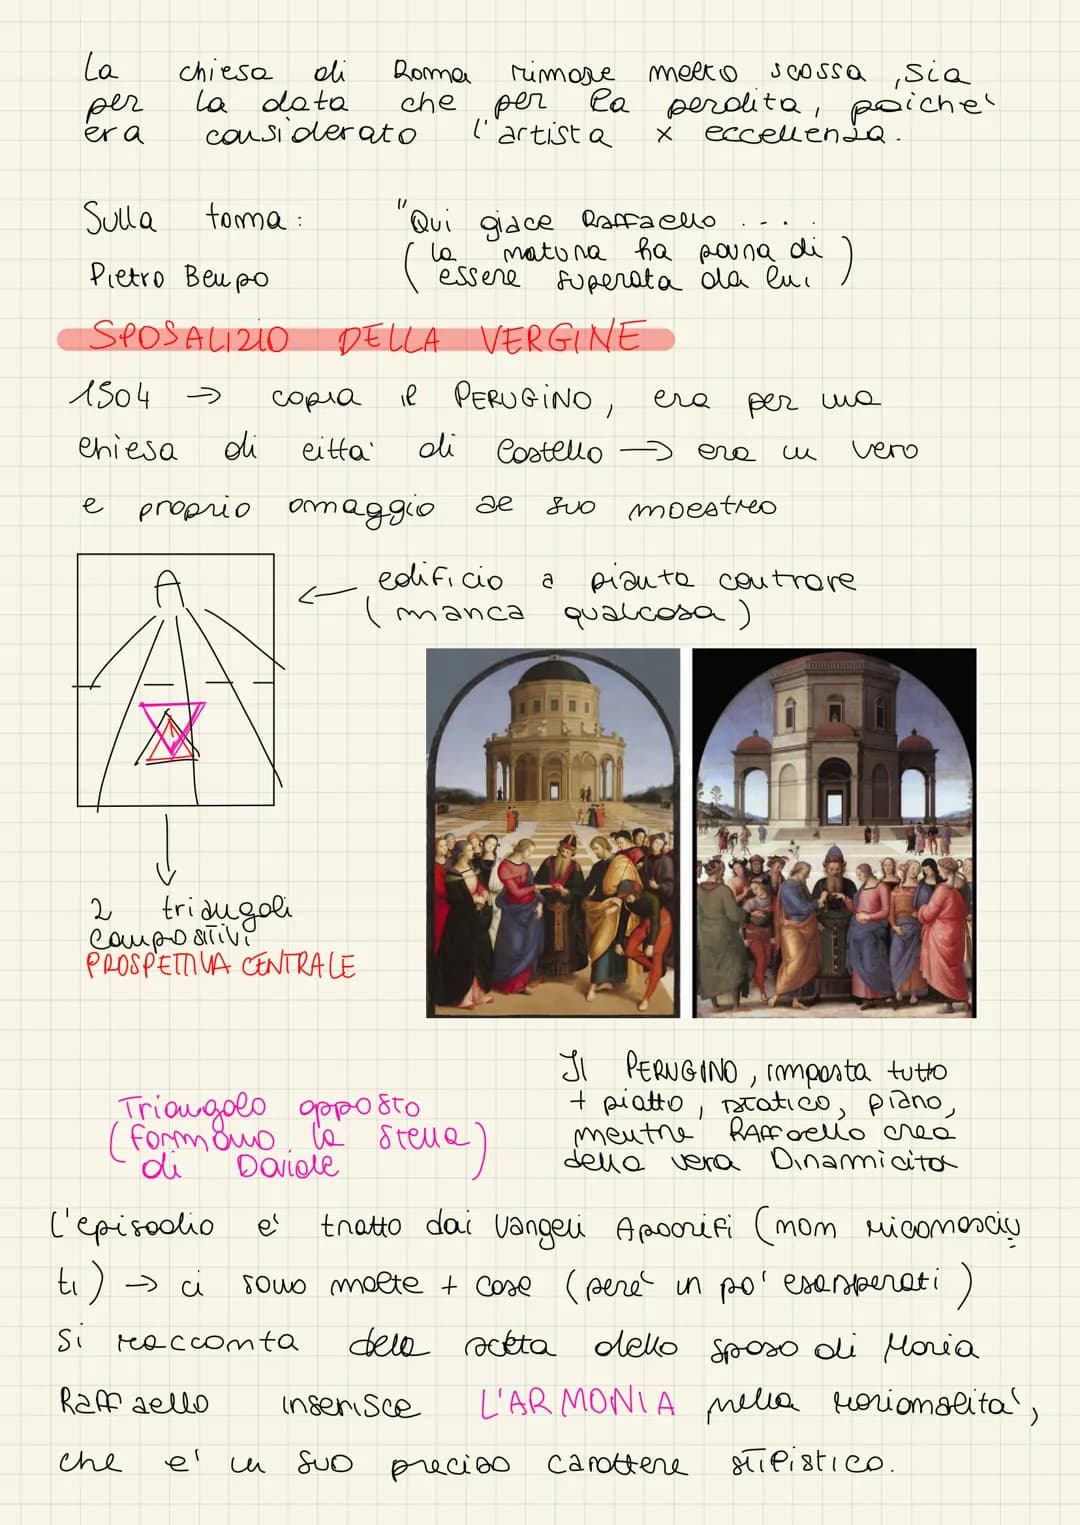 La chiesa di Roma rimase molto scossa, sia
per la data che per la perdita, poiche'
era considerato l'artista x eccellenza.
Sulla tomba: "Qui giace Raffaello ....
( la natura ha paura di )
Pietro Bempo
( essere superata da lui )
SPOSALIZIO DELLA VERGINE
1504 → copia il PERUGINO, era per una
chiesa di citta' di Castello → era un vero
e proprio omaggio al suo maestro
A
← edificio a pianta centrare
(manca qualcosa)
2 triangoli
compositivi
PROSPETTIVA CENTRALE
Il PERUGINO, imposta tutto
+ piatto, statico, piano,
mentre RAffaello crea
della vera Dinamicità
Triangolo opposto
(formano la stella)
di Davide
L'episodio e' tratto dai Vangeli Apocrifi (non riconosciu
ti) → ci sono molte + cose (pero' un po' esasperati)
Si racconta della scelta dello sposo di Maria
Raffaello inserisce L'ARMONIA nella razionalita',
che e' un suo preciso carattere stilistico.